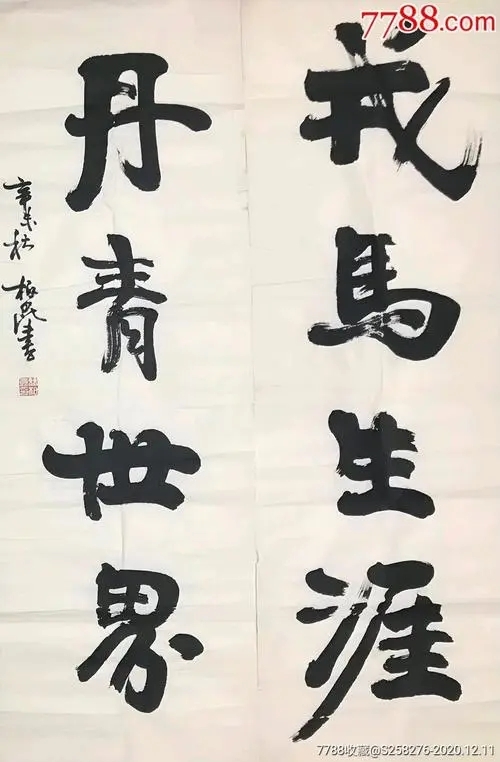 7788.com
戎馬生涯
丹青世界
辛未秋
7788收藏@S258276-2020.12.11